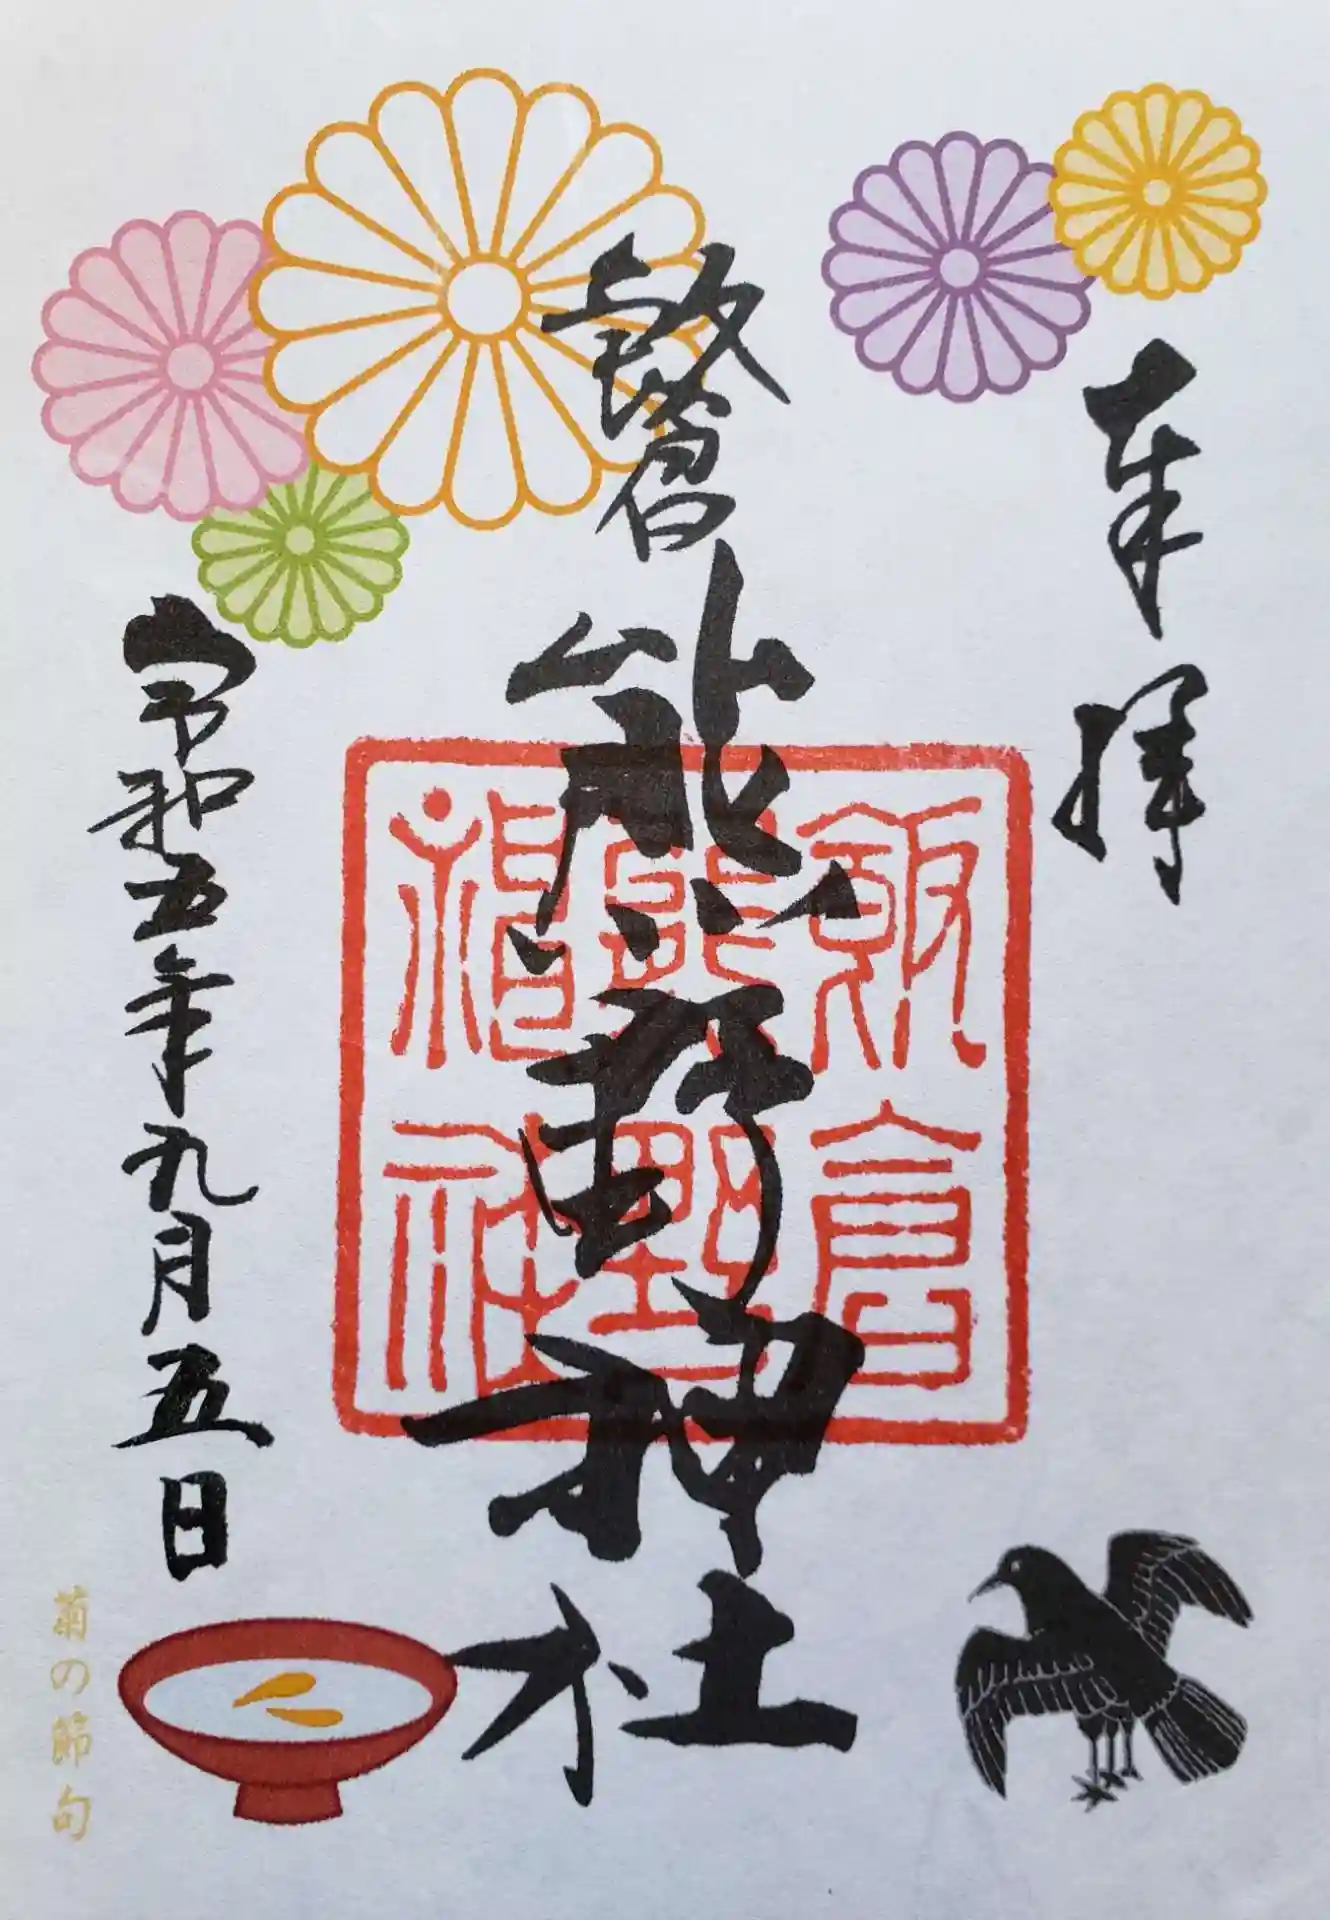 奉拝
飯倉
熊野神社
飯倉
熊野
神社
令和五年九月五日
菊の節句